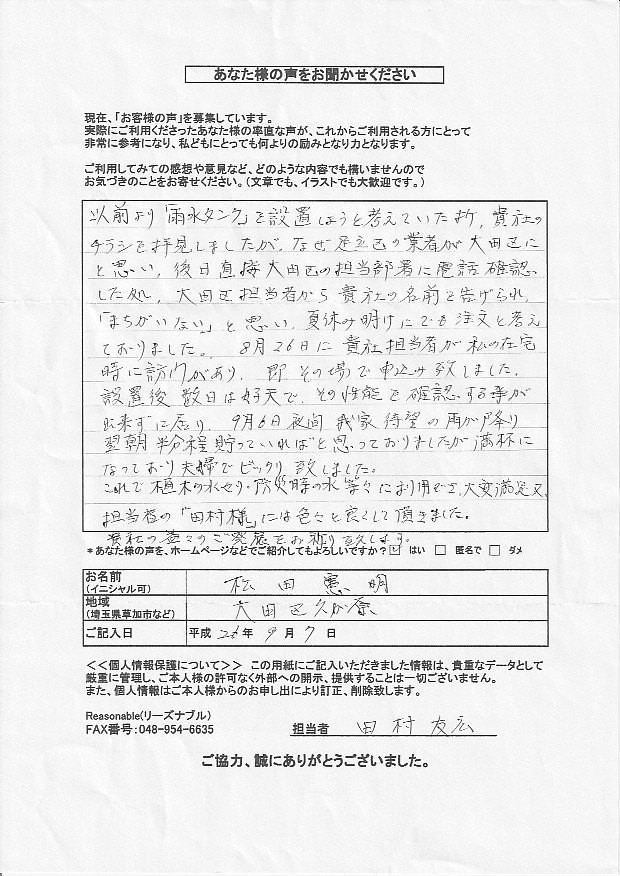 あなた様の声をお聞かせください
現在、「お客様の声」を募集しています。
実際にご利用くださったあなた様の率直な声が、これからご利用される方にとって
非常に参考になり、私どもにとっても何よりの励みとなり力となります。
ご利用してみての感想や意見など、どのような内容でも構いませんので
お気づきのことをお寄せください。(文章でも、イラストでも大歓迎です。)
以前より「雨水タンク」を設置しようと考えていた折，貴社の
チラシを拝見しましたが，なぜ足立区の業者が大田区に
と思い，後日直接大田区の担当部署に電話確認
した処，大田区担当者から貴社の名前を告げられ，
「まちがいない」と思い，夏休み明けにでも注文と考え
ておりました。 8月26日に貴社担当者が私の在宅
時に訪門があり，即その場で申込み致しました。
設置後数日は好天で，その性能を確認する事が
出来ずに居り，9月6日夜間我家待望の雨が降り
翌朝半分程貯っていればと思っておりましたが満杯に
なっており夫婦でビックリ致しました。
これで植木の水やり・防災時の水等々に利用でき，大変満足又，
担当者の「田村様」には色々と良くして頂きました。
貴社の益々のご発展をお祈り致します。
*あなた様の声を、ホームページなどでご紹介してもよろしいですか? ☑ はい □ 匿名で □ ダメ
お名前
(イニシャル可) 松田憲明
地域
(埼玉県草加市など) 大田区久が原
ご記入日 平成 26 年 9 月 7 日
<<個人情報保護について>> この用紙にご記入いただきました情報は、貴重なデータとして
厳重に管理し、ご本人様の許可なく外部への開示、提供することは一切ございません。
また、個人情報はご本人様からのお申し出により訂正、削除致します。
Reasonable(リーズナブル)
FAX番号:048-954-6635 担当者 田村友広
ご協力、誠にありがとうございました。